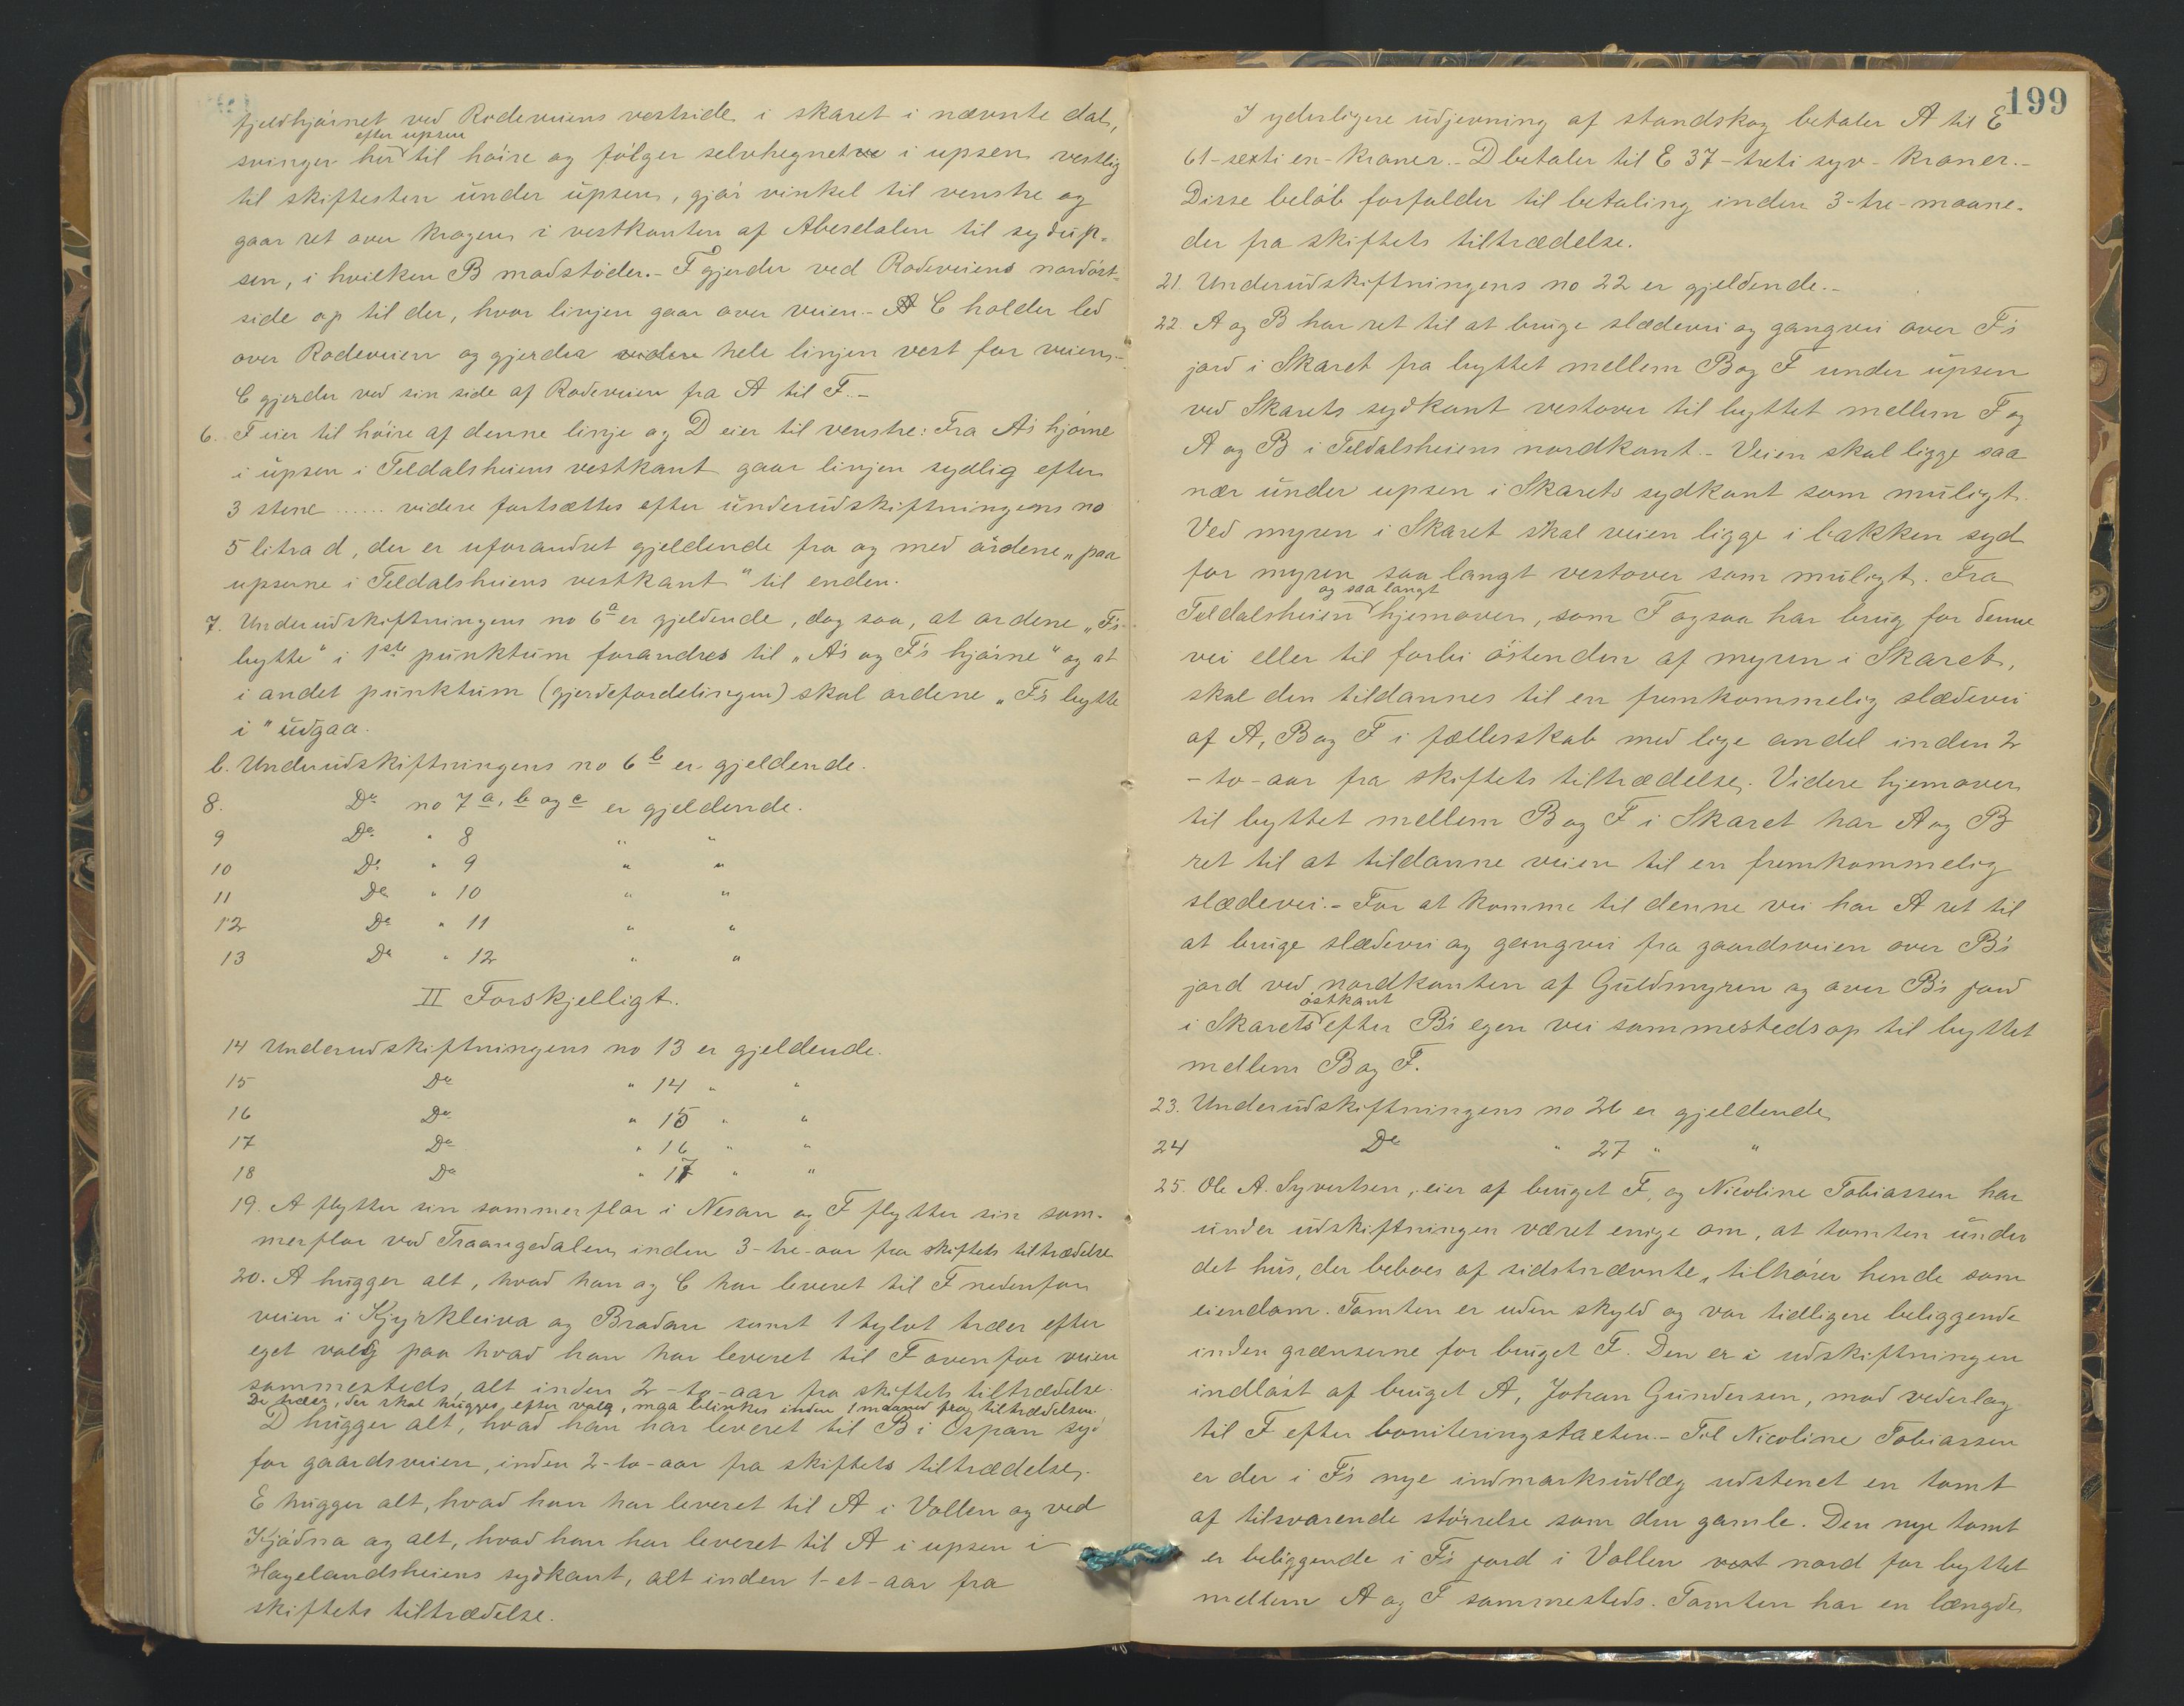 fjeldhjørnet ved Rodeveiens vestside i skaret i nævnte dal,
efter upsen
svinger her til höire og følger selvhegnet i upsen vestlig
til skiftesten under upsen, gjør vinkel til venstre og
gaar ret over kragen i vestkanten af Abesdalen til sydup-
sen, i hvilken B modstøder.- F gjerder ved Rodeveiens nordöst-
side op til der, hvor linjen gaar over veien.- C holder led
over Rodeveien og gjerder videre hele linjen vest for veien.-
C gjerder ved sin side af Rodeveien fra A til F.-
6. F eier til höire af denne linje og D eier til venstre: Fra A's hjørne
i upsen i Teldalsheiens vestkant gaar linjen sydlig efter
3 stene ...... videre fortsættes efter underudskiftningens no
5 litra d, der er uforandret gjeldende fra og med ordene „paa
upserne i Teldalsheiens vestkant" til enden.
7. Underudskiftningens no 6 a er gjeldende, dog saa, at ordene „F's
bytte" i 1ste punktum forandres til „A's og F's hjørne" og at
i andet punktum (gjerdefordelingen) skal ordene „F's bytte
i" udgaa.
b. Underudskiftningens no 6 b er gjeldende.
8. Do no 7 a, b og c er gjeldende.
9 Do " 8 " "
10 Do " 9 " "
11 Do " 10 " "
12 Do " 11 " "
13 Do " 12 " "
II Forskjelligt.
14 Underudskiftningens no 13 er gjeldende.
15 Do " 14 " "
16 Do " 15 " "
17 Do " 16 " "
18 Do " 17 " "
19. A flytter sin sommerflor i Nesan og F flytter sin som-
merflor ved Traangedalen inden 3-tre-aar fra skiftets tiltrædelse
20. A hugger alt, hvad han og C har leveret til F nedenfor
veien i Kjyrkleiva og Bradan samt 1 tylvt træer efter
eget valg paa hvad han har leveret til F ovenfor veien
sammesteds, alt inden 2-to-aar fra skiftets tiltrædelse.
De træer, der skal hugges efter valg, maa blinkes inden 1 maaned fra tiltrædelsen.
D hugger alt, hvad han har leveret til B i Ospan syd
for gaardsveien, inden 2-to-aar fra skiftets tiltrædelse.
E hugger alt, hvad han har leveret til A i Vollen og ved
Kjödna og alt, hvad han har leveret til A i upsen i
Hagelandsheiens sydkant, alt inden 1-et-aar fra
skiftets tiltrædelse.
199
I yderligere udjevning af standskog betaler A til E
61-sexti en-kroner.- D betaler til E 37-treti syv-kroner.-
Disse beløb forfalder til betaling inden 3-tre-maane-
der fra skiftets tiltrædelse.
21. Underudskiftningens no 22 er gjeldende.-
22. A og B har ret til at bruge slædevei og gangvei over F's
jord i Skaret fra byttet mellem B og F under upsen
ved Skarets sydkant vestover til byttet mellem F og
A og B i Teldalsheiens nordkant.- Veien skal ligge saa
nær under upsen i Skarets sydkant som muligt.
Ved myren i Skaret skal veien ligge i bakken syd
for myren saa langt vestover som muligt. Fra
og saa langt
Teldalsheien hjemover, som F ogsaa har brug for denne
vei eller til forbi östenden af myren i Skaret,
skal den tildannes til en fremkommelig slædevei
af A, B og F i fællesskab med lige andel inden 2
-to-aar fra skiftets tiltrædelse. Videre hjemover
til byttet mellem B og F i Skaret har A og B
ret til at tildanne veien til en fremkommelig
slædevei.- For at komme til denne vei har A ret til
at bruge slædevei og gangvei fra gaardsveien over B's
jord ved nordkanten af Guldmyren og over B's jord
östkant
i Skarets efter B's egen vei sammesteds op til byttet
mellem B og F.
23. Underudskiftningens no 26 er gjeldende
24 Do " 27 " "
25. Ole A. Syvertsen, eier af bruget F, og Nicoline Tobiassen har
under udskiftningen været enige om, at tomten under
det hus, der beboes af sidstnævnte, tilhører hende som
eiendom. Tomten er uden skyld og var tidligere beliggende
inden grænserne for bruget F. Den er i udskiftningen
indløst af bruget A, Johan Gundersen, mod vederlag
til F efter boniteringstaxten.- Til Nicoline Tobiassen
er der i F's nye indmarksudlæg udstenet en tomt
af tilsvarende størrelse som den gamle. Den nye tomt
er beliggende i F's jord i Vollen vest nord for byttet
mellem A og F sammesteds. Tomten har en længde